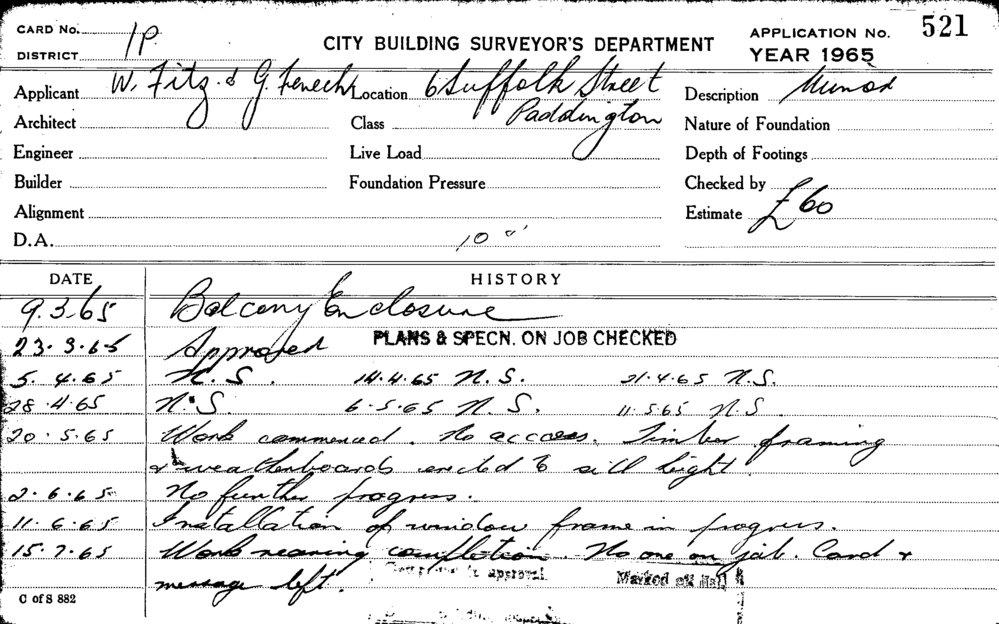 CARD No. 1P. CITY BUILDING SURVEYOR'S DEPARTMENT APPLICATION No. 521
DISTRICT YEAR 1965
Applicant W. Fitz. & G. Fenech Location 6 Suffolk Street Description Minor
Architect Class Paddington Nature of Foundation
Engineer Live Load Depth of Footings
Builder Foundation Pressure Checked by
Alignment Estimate £60
D.A. 10
DATE HISTORY
9.3.65 Balcony Enclosure
23.3.65 Approved PLANS & SPECN. ON JOB CHECKED
5.4.65 N.S. 14.4.65 N.S. 21.4.65 N.S.
28.4.65 N.S. 6.5.65 N.S. 11.5.65 N.S.
20.5.65 Work commenced. No access. Timber framing
& weatherboards erected to sill height.
2.6.65 No further progress.
11.6.65 Installation of window frame in progress.
15.7.65 Work nearing completion. No one on job. Card &
message left.
approval Marked off
C of S 882